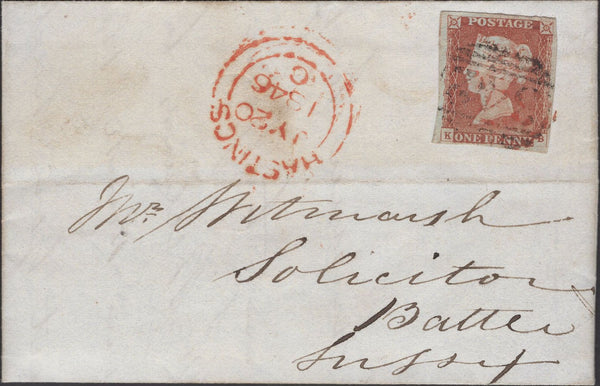 POSTAGE
ONE PENNY
HASTINGS
JY 20
1846
C
Mr. Whitmarsh
Solicitor
Battle
Sussex